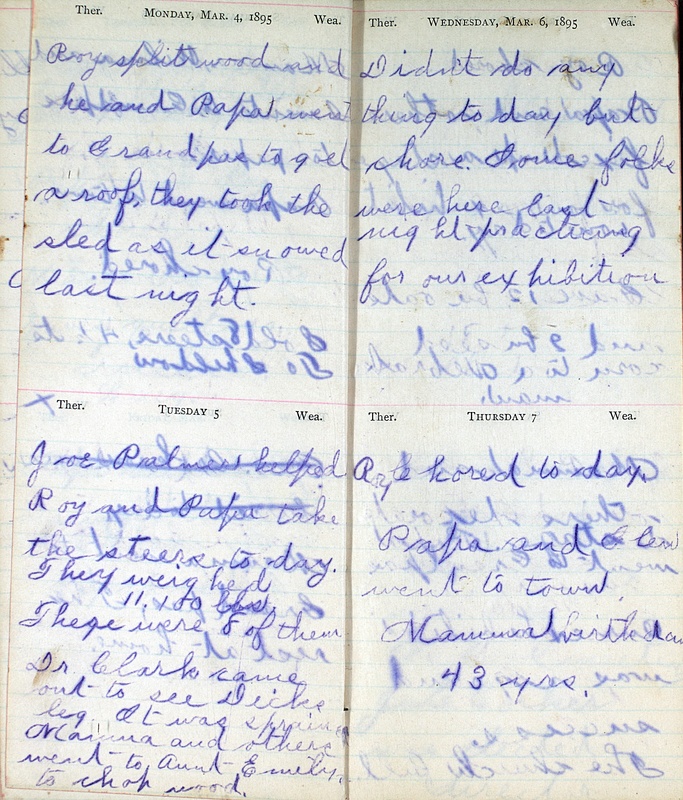 Ther. MONDAY, MAR. 4, 1895 Wea.
Roy split wood and
he and Papa went
to Grandpas to get
a roof, they took the
sled as it snowed
last night.
Ther. TUESDAY 5 Wea.
Joe Palmer helped
Roy and Papa take
the steers to day.
They weighed
11.100 lbs.
There were 8 of them
Dr. Clark came
out to see Dicks
leg. It was sprained
Mamma and others
went to Aunt Emily.
to chop wood.
Ther. WEDNESDAY, MAR. 6, 1895 Wea.
Didn't do any
thing to day but
chore. Some folks
were here last
night practicing
for our exhibition
Ther. THURSDAY 7 Wea.
kored to day.
Papa and
went to town.
Mamma birthday
43 yrs.